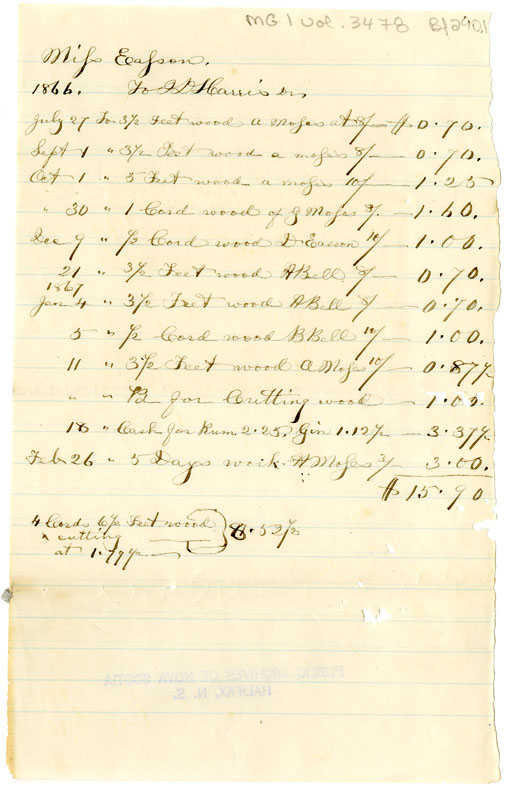 MG 1 Vol. 3478 B/290.1
Miss Easson.
1866. To Harris Dr,
July 27 For 3½ Feet wood A Moses at 8/— $0.70.
Sept 1 " 3½ Feet wood a moses 8/— 0.70.
Oct 1 " 5 Feet wood a moses 10/— 1.25
" 30 " 1 Cord wood of J Moses 8/. — 1.60.
Dec 9 " ½ Cord wood D Easson 10/— 1.00.
21 " 3½ Feet wood A Bell 8/— 0.70
1867
Jan 4 " 3½ Feet wood A Bell 8/— 0.70.
5 " ½ Cord wood B Bell 10/— 1.00.
11 " 3½ Feet wood A Moses 10/— 0.87½
" " Pd for Cutting wood — 1.00.
18 " Cash for Rum 2.25, Gin 1.12½ — 3.37½
Feb 26 " 5 Days work H Moses 3/— 3.00.
$15.90
4 Cords 6½ Feet wood
cutting 8.52½
at 1.77½
PUBLIC ARCHIVES OF NOVA SCOTIA
HALIFAX, N. S.